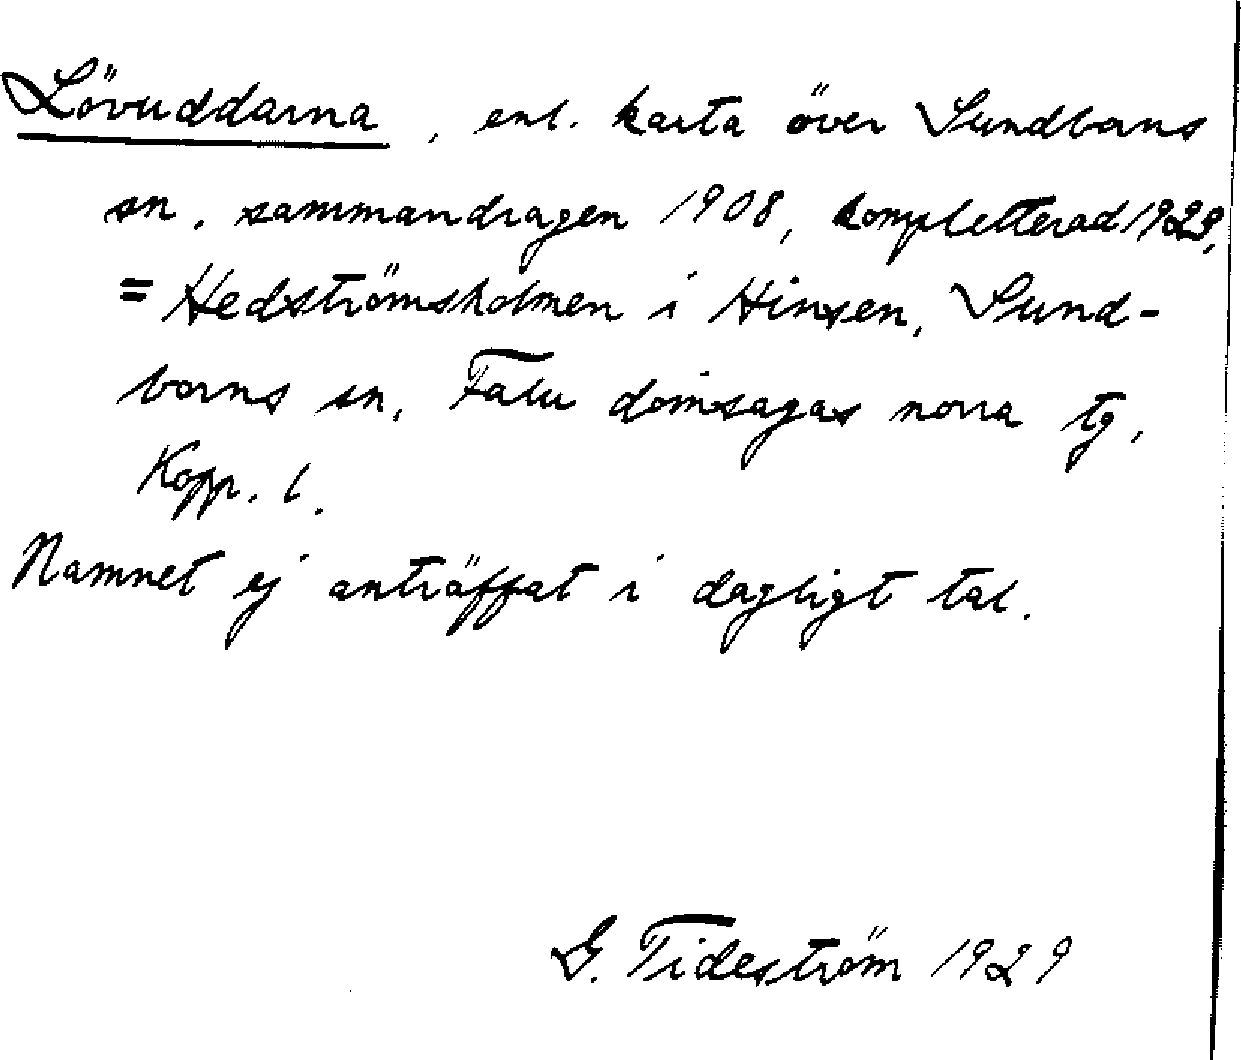 Lövuddarna, enl. karta över Sundborns
sn, sammandragen 1908, kompletterad 1929,
= Hedströmsholmen i Hinsen, Sund-
borns sn, Falu domsagas norra tg,
Kopp. l.
Namnet ej anträffat i dagligt tal.
G. Tideström 1929